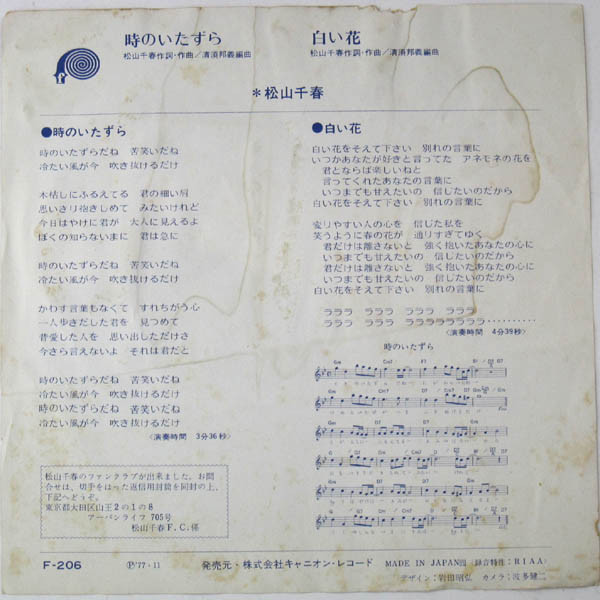 時のいたずら
松山千春作詞・作曲／清須邦義編曲
白い花
松山千春作詞・作曲／清須邦義編曲
＊松山千春
●時のいたずら
時のいたずらだね　苦笑いだね
冷たい風が今　吹き抜けるだけ
木枯しにふるえてる　君の細い肩
思いきり抱きしめて　みたいけれど
今日はやけに君が　大人に見えるよ
ぼくの知らないまに　君は急に
時のいたずらだね　苦笑いだね
冷たい風が今　吹き抜けるだけ
かわす言葉もなくて　すれちがう心
一人歩きだした君を　見つめて
昔愛した人を　思い出しただけさ
今さら言えないよ　それは君だと
時のいたずらだね　苦笑いだね
冷たい風が今　吹き抜けるだけ
時のいたずらだね　苦笑いだね
冷たい風が今　吹き抜けるだけ
〈演奏時間　3分36秒〉
松山千春のファンクラブが出来ました。お問
合せは、切手をはった返信用封筒を同封の上、
下記へどうぞ。
東京都大田区山王2の1の8
アーバンライフ 705号
松山千春F.C.係
●白い花
白い花をそえて下さい　別れの言葉に
いつかあなたが好きと言ってた　アネモネの花を
君とならば楽しいねと
言ってくれたあなたの言葉に
いつまでも甘えたいの　信じたいのだから
白い花をそえて下さい　別れの言葉に
変りやすい人の心を　信じた私を
笑うように春の花が　通りすぎてゆく
君だけは離さないと　強く抱いたあなたの心に
いつまでも甘えたいの　信じたいのだから
君だけは離さないと　強く抱いたあなたの心に
いつまでも甘えたいの　信じたいのだから
白い花をそえて下さい　別れの言葉に
ラララ　ララララ　ラララ　ラララ
ラララ　ラララ　ララララララララ…………
〈演奏時間　4分39秒〉
時のいたずら
F-206
Ⓟ'77・11
発売元・株式会社キャニオン・レコード
MADE IN JAPAN
〈録音特性：RIAA〉
デザイン／岩田昭弘　カメラ／波多健二